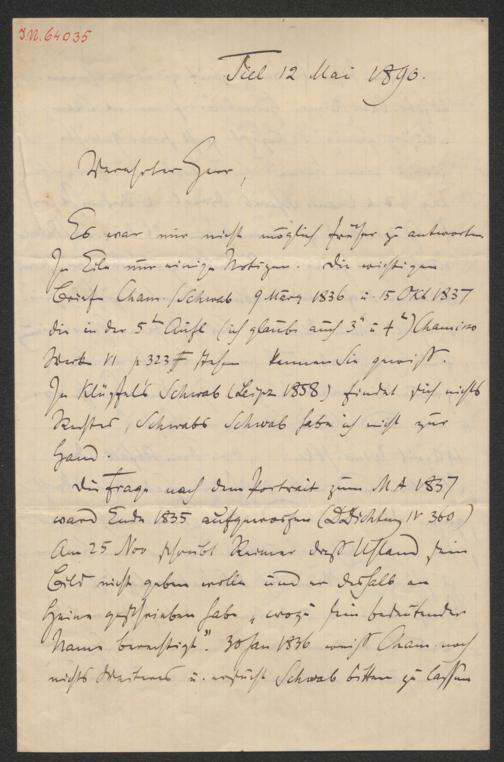 J.N. 64035
Tiel 12 Mai 1890.
Verehrter Herr,
Es war mir nicht möglich früher zu antworten
In Eile nur einige Notizen. Die wichtigen
Briefe Cham. / Schwab 9 März 1836 u. 15 Okt 1837
die in der 5ten Aufl (ich glaube auch 3n u 4n) Chamisso
Werke VI p 323 ff stehen kennen Sie gewiss.
In Klüpfel's Schwab (Leipz 1858) findet sich nichts
Rechtes, Schwabs Schwab habe ich nicht zur
Hand.
Die Frage nach dem Portrait zum MA 1837
ward Ende 1835 aufgeworfen (DDichtung IV 360)
Am 25 Nov schreibt Reimer dass Uhland sein
Bild nicht geben wolle und er deshalb an
Heine geschrieben habe, „wozu sein bedeutender
Name berechtigt". 30 Jan 1836 weiss Cham. noch
nichts Weiteres u. ersucht Schwab bitten zu lassen